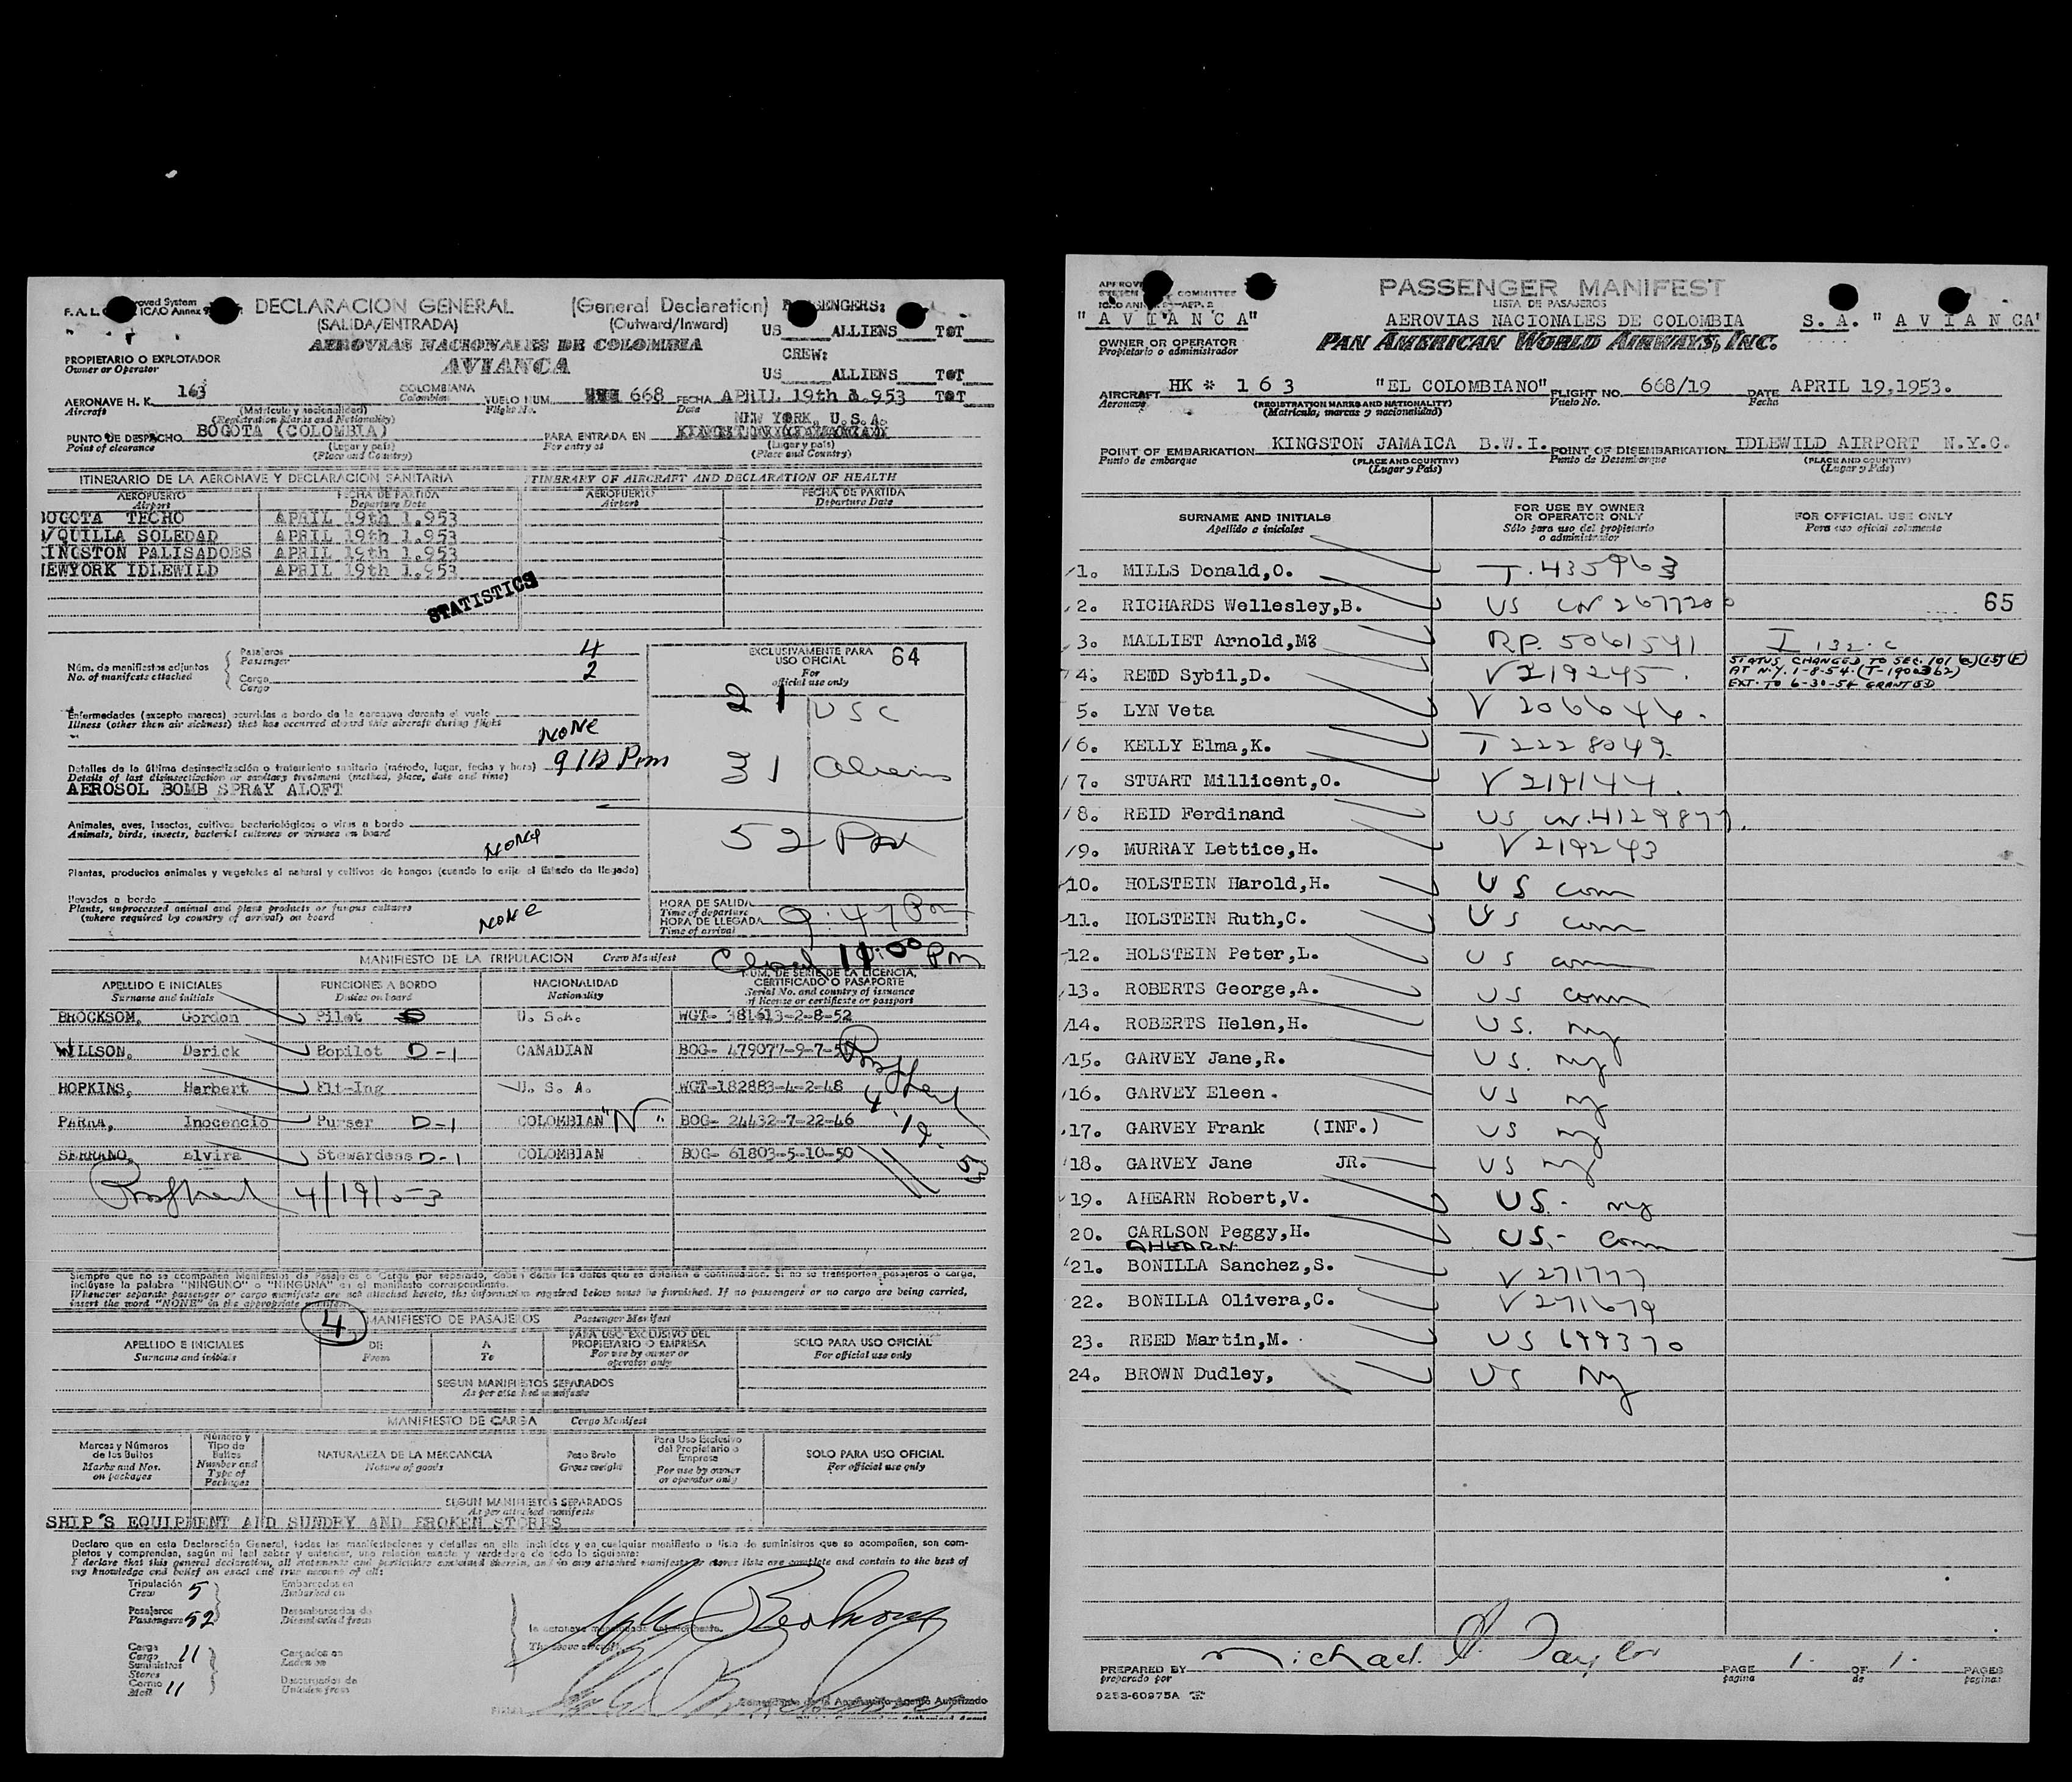 F. A. L.
roved System
ICAO Annex 9
DECLARACION GENERAL (General Declaration)
(SALIDA/ENTRADA) (Outward/Inward)
PASSENGERS:
US ALLIENS TOT
AEROVIAS NACIONALES DE COLOMBIA
AVIANCA
CREW:
US ALLIENS TOT
PROPIETARIO O EXPLOTADOR
Owner or Operator
AERONAVE H. K. 163 COLOMBIANA VUELO NUM. 668 FECHA APRIL 19th 1.953 TOT
Aircraft Colombian Flight No. Date
(Matrícula y nacionalidad)
(Registration Marks and Nationality)
NEW YORK, U.S.A.
PUNTO DE DESPACHO BOGOTA (COLOMBIA) PARA ENTRADA EN
Point of clearance (Lugar y país) For entry at (Lugar y país)
(Place and Country) (Place and Country)
ITINERARIO DE LA AERONAVE Y DECLARACION SANITARIA ITINERARY OF AIRCRAFT AND DECLARATION OF HEALTH
AEROPUERTO FECHA DE PARTIDA AEROPUERTO FECHA DE PARTIDA
Airport Departure Date Airport Departure Date
BOGOTA TECHO APRIL 19th 1.953
B/QUILLA SOLEDAD APRIL 19th 1.953
KINGSTON PALISADOES APRIL 19th 1.953
NEWYORK IDLEWILD APRIL 19th 1.953
STATISTICS
Núm. de manifiestos adjuntos
No. of manifests attached
Pasajeros
Passenger 4
Carga
Cargo 2
EXCLUSIVAMENTE PARA
USO OFICIAL 64
For
official use only
21 USC
31 Aliens
52 Pax
Enfermedades (excepto mareos) ocurridas a bordo de la aeronave durante el vuelo
Illness (other than air sickness) that has occurred aboard this aircraft during flight
NONE
Detalles de la última desinsectización o tratamiento sanitario (método, lugar, fecha y hora)
Details of last disinsectization or sanitary treatment (method, place, date and time)
AEROSOL BOMB SPRAY ALOFT
Animales, aves, insectos, cultivos bacteriológicos o virus a bordo
Animals, birds, insects, bacterial cultures or viruses on board
NONE
Plantas, productos animales y vegetales al natural y cultivos de hongos (cuando lo exija el Estado de llegada)
llevados a bordo
Plants, unprocessed animal and plant products or fungus cultures
(where required by country of arrival) on board
NONE
HORA DE SALIDA
Time of departure
HORA DE LLEGADA
Time of arrival 9:47 Pm
MANIFIESTO DE LA TRIPULACION Crew Manifest
11:00 Pm
APELLIDO E INICIALES FUNCIONES A BORDO NACIONALIDAD NUM. DE SERIE DE LA LICENCIA, CERTIFICADO O PASAPORTE
Surname and initials Duties on board Nationality Serial No. and country of issuance of license or certificate or passport
BROCKSOM, Gordon Pilot U. S.A. WGT- 381613-2-8-52
WILLSON, Derick Copilot D-1 CANADIAN
HOPKINS, Herbert Fli-Ing U. S. A. WGT-182883-4-2-48
PARRA, Inocencio Purser D-1 COLOMBIAN "N" BOG- 24432-7-22-46
SERRANO, Elvira Stewardess D-1 COLOMBIAN BOG- 61803-5-10-50
4/19/53
Siempre que no se acompañen Manifiestos de Pasajeros o Carga por separado, deben darse los datos que se detallan a continuación. Si no se transportan pasajeros o carga,
inclúyase la palabra "NINGUNO" en el manifiesto correspondiente.
Whenever separate passenger or cargo manifests are not attached hereto, the information required below must be furnished. If no passengers or no cargo are being carried,
insert the word "NONE" in the appropriate manifest.
4
MANIFIESTO DE PASAJEROS Passenger Manifest
APELLIDO E INICIALES DE A PARA USO EXCLUSIVO DEL PROPIETARIO O EMPRESA SOLO PARA USO OFICIAL
Surname and initials From To For use by owner or operator only For official use only
SEGUN MANIFIESTOS SEPARADOS
As per attached manifests
MANIFIESTO DE CARGA Cargo Manifest
Marcas y Números de los Bultos
Marks and Nos. on packages
Número y Tipo de Bultos
Number and Type of Packages
NATURALEZA DE LA MERCANCIA
Nature of goods
Peso Bruto
Gross weight
Para Uso Exclusivo del Propietario o Empresa
For use by owner or operator only
SOLO PARA USO OFICIAL
For official use only
SEGUN MANIFIESTOS SEPARADOS
As per attached manifests
SHIP'S EQUIPMENT AND SUNDRY AND BROKEN STORES
Declaro que en esta Declaración General, todas las manifestaciones y detalles en ella incluídos y en cualquier manifiesto o lista de suministros que se acompañen, son com-
pletos y comprenden, según mi leal saber y entender, una relación exacta y verdadera de todo lo siguiente:
I declare that this general declaration, all statements and particulars contained therein, and in any attached manifests or stores lists are complete and contain to the best of
my knowledge and belief an exact and true account of all:
Tripulación
Crew 5
Pasajeros
Passengers 52
Carga
Cargo 11
Suministros
Stores
Correo
Mail 11
Embarcados en
Embarked on
Desembarcados de
Disembarked from
Cargados en
Laden on
Descargados de
Unladen from
la aeronave mencionada anteriormente.
The above aircraft.
PASSENGER MANIFEST
LISTA DE PASAJEROS
"AVIANCA" AEROVIAS NACIONALES DE COLOMBIA S. A. "AVIANCA"
OWNER OR OPERATOR PAN AMERICAN WORLD AIRWAYS, INC.
Propietario o administrador
AIRCRAFT HK * 163 "EL COLOMBIANO" FLIGHT NO. 668/19 DATE APRIL 19,1953.
Aeronave (REGISTRATION MARKS AND NATIONALITY) Vuelo No. Fecha
(Matrícula, marcas y nacionalidad)
POINT OF EMBARKATION KINGSTON JAMAICA B.W.I. POINT OF DISEMBARKATION IDLEWILD AIRPORT N.Y.C.
Punto de embarque (PLACE AND COUNTRY) Punto de Desembarque (PLACE AND COUNTRY)
(Lugar y País) (Lugar y País)
SURNAME AND INITIALS FOR USE BY OWNER OR OPERATOR ONLY FOR OFFICIAL USE ONLY
Apellido e iniciales Sólo para uso del propietario o administrador Para uso oficial solamente
1. MILLS Donald,O. T.435963
2. RICHARDS Wellesley,B. US CN 2677200 65
3. MALLIET Arnold,M8 RP. 5061541 I 132. C
4. REID Sybil,D. V 219245
STATUS CHANGED TO SEC. 101 (a)(15)(F)
AT N.Y. 1-8-54. (T-1900362)
EXT. TO 6-30-54 GRANTED
5. LYN Veta V 206646.
6. KELLY Elma,K. T 2228049.
7. STUART Millicent,O. V 219144.
8. REID Ferdinand US CN.4129877.
9. MURRAY Lettice,H. V 219243
10. HOLSTEIN Harold,H. US conn
11. HOLSTEIN Ruth,C. US conn
12. HOLSTEIN Peter,L. US conn
13. ROBERTS George,A. US conn
14. ROBERTS Helen,H. US. ny
15. GARVEY Jane,R. US. ny
16. GARVEY Eleen. US ny
17. GARVEY Frank (INF.) US ny
18. GARVEY Jane JR. US ny
19. AHEARN Robert,V. US.- ny
20. CARLSON Peggy,H. US.- Conn
AHEARN
21. BONILLA Sanchez,S. V 271777
22. BONILLA Olivera,C. V 271679
23. REED Martin,M. US 699370
24. BROWN Dudley, US Ny
PREPARED BY Michael A. Taylor PAGE 1. OF 1. PAGES
preparado por página de páginas
9253-60975A